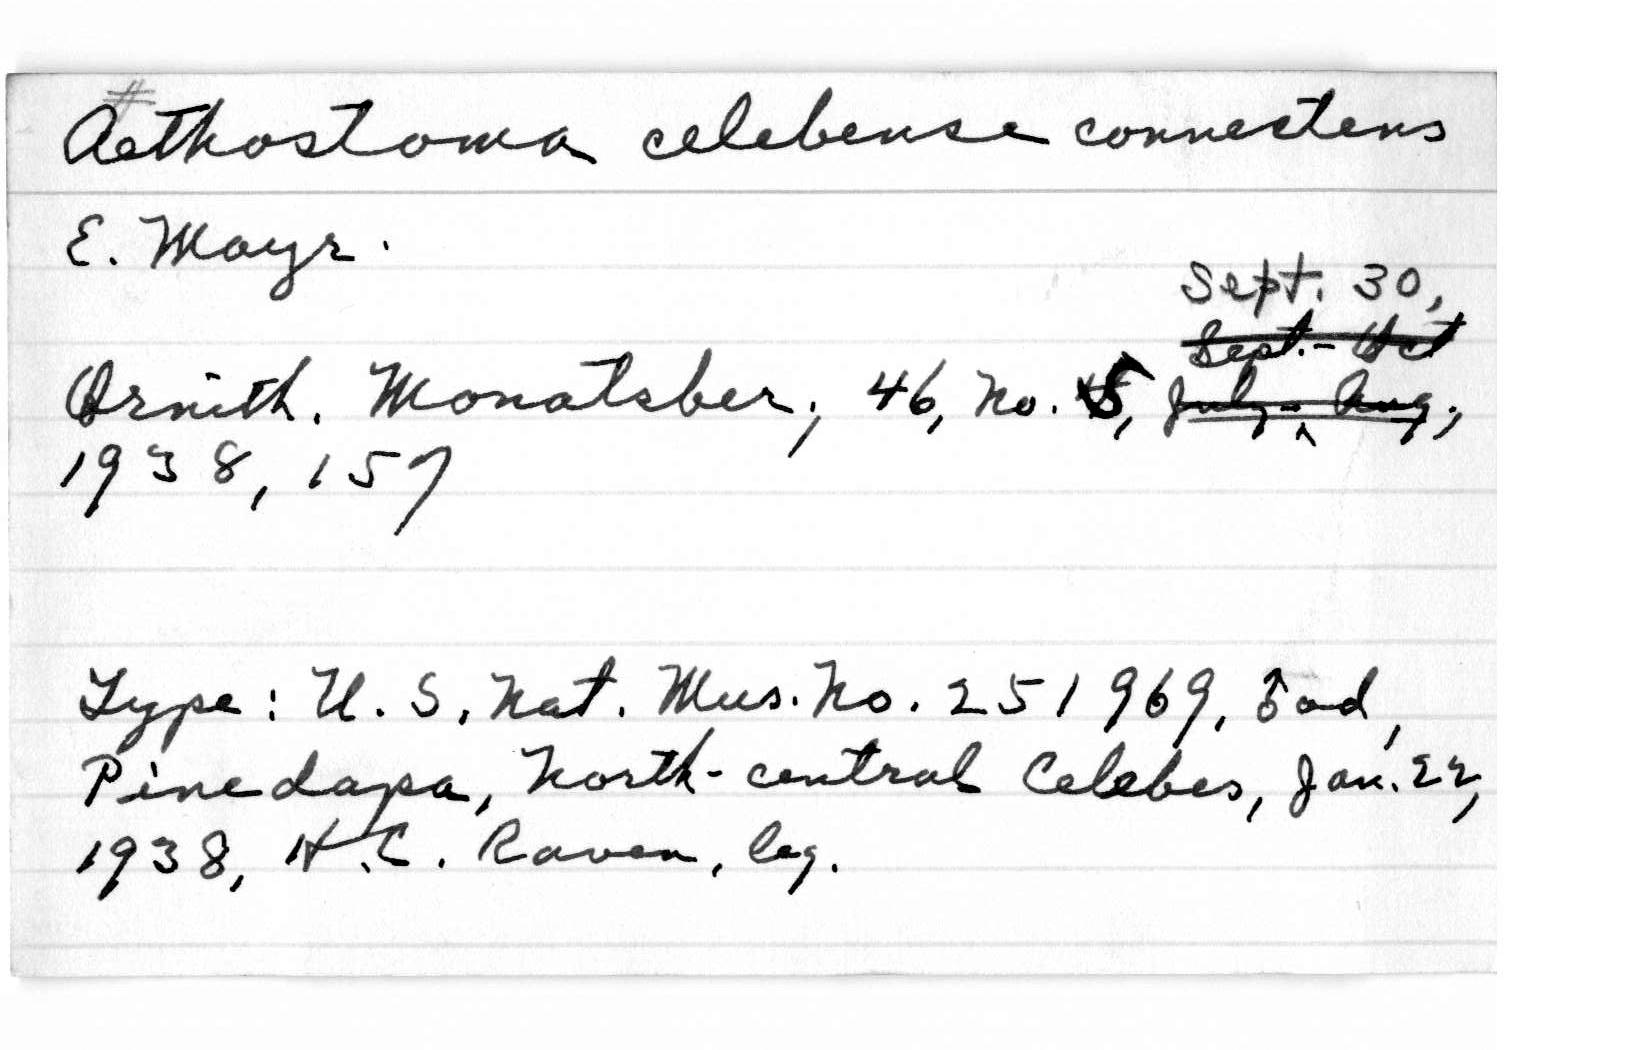 #
Aethostoma celebense connectens
E. Mayr.
Sept. 30,
Sept.-Oct
Ornith. Monatsber., 46, No. 5, July-Aug.,
1938, 157
Type: U.S. Nat. Mus. No. 251969, ♂ ad,
Pinedapa, North-central Celebes, Jan. 22,
1938, H.C. Raven, leg.